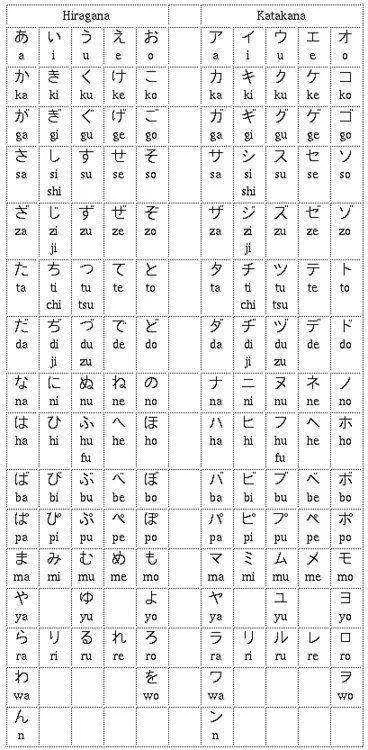 Hiragana Katakana
あ い う え お ア イ ウ エ オ
a i u e o a i u e o
か き く け こ カ キ ク ケ コ
ka ki ku ke ko ka ki ku ke ko
が ぎ ぐ げ ご ガ ギ グ ゲ ゴ
ga gi gu ge go ga gi gu ge go
さ し す せ そ サ シ ス セ ソ
sa si su se so sa si su se so
shi shi
ざ じ ず ぜ ぞ ザ ジ ズ ゼ ゾ
za zi zu ze zo za zi zu ze zo
ji ji
た ち つ て と タ チ ツ テ ト
ta ti tu te to ta ti tu te to
chi tsu chi tsu
だ ぢ づ で ど ダ ヂ ヅ デ ド
da di du de do da di du de do
ji zu ji zu
な に ぬ ね の ナ ニ ヌ ネ ノ
na ni nu ne no na ni nu ne no
は ひ ふ へ ほ ハ ヒ フ ヘ ホ
ha hi hu he ho ha hi hu he ho
fu fu
ば び ぶ べ ぼ バ ビ ブ ベ ボ
ba bi bu be bo ba bi bu be bo
ぱ ぴ ぷ ぺ ぽ パ ピ プ ペ ポ
pa pi pu pe po pa pi pu pe po
ま み む め も マ ミ ム メ モ
ma mi mu me mo ma mi mu me mo
や ゆ よ ヤ ユ ヨ
ya yu yo ya yu yo
ら り る れ ろ ラ リ ル レ ロ
ra ri ru re ro ra ri ru re ro
わ を ワ ヲ
wa wo wa wo
ん ン
n n